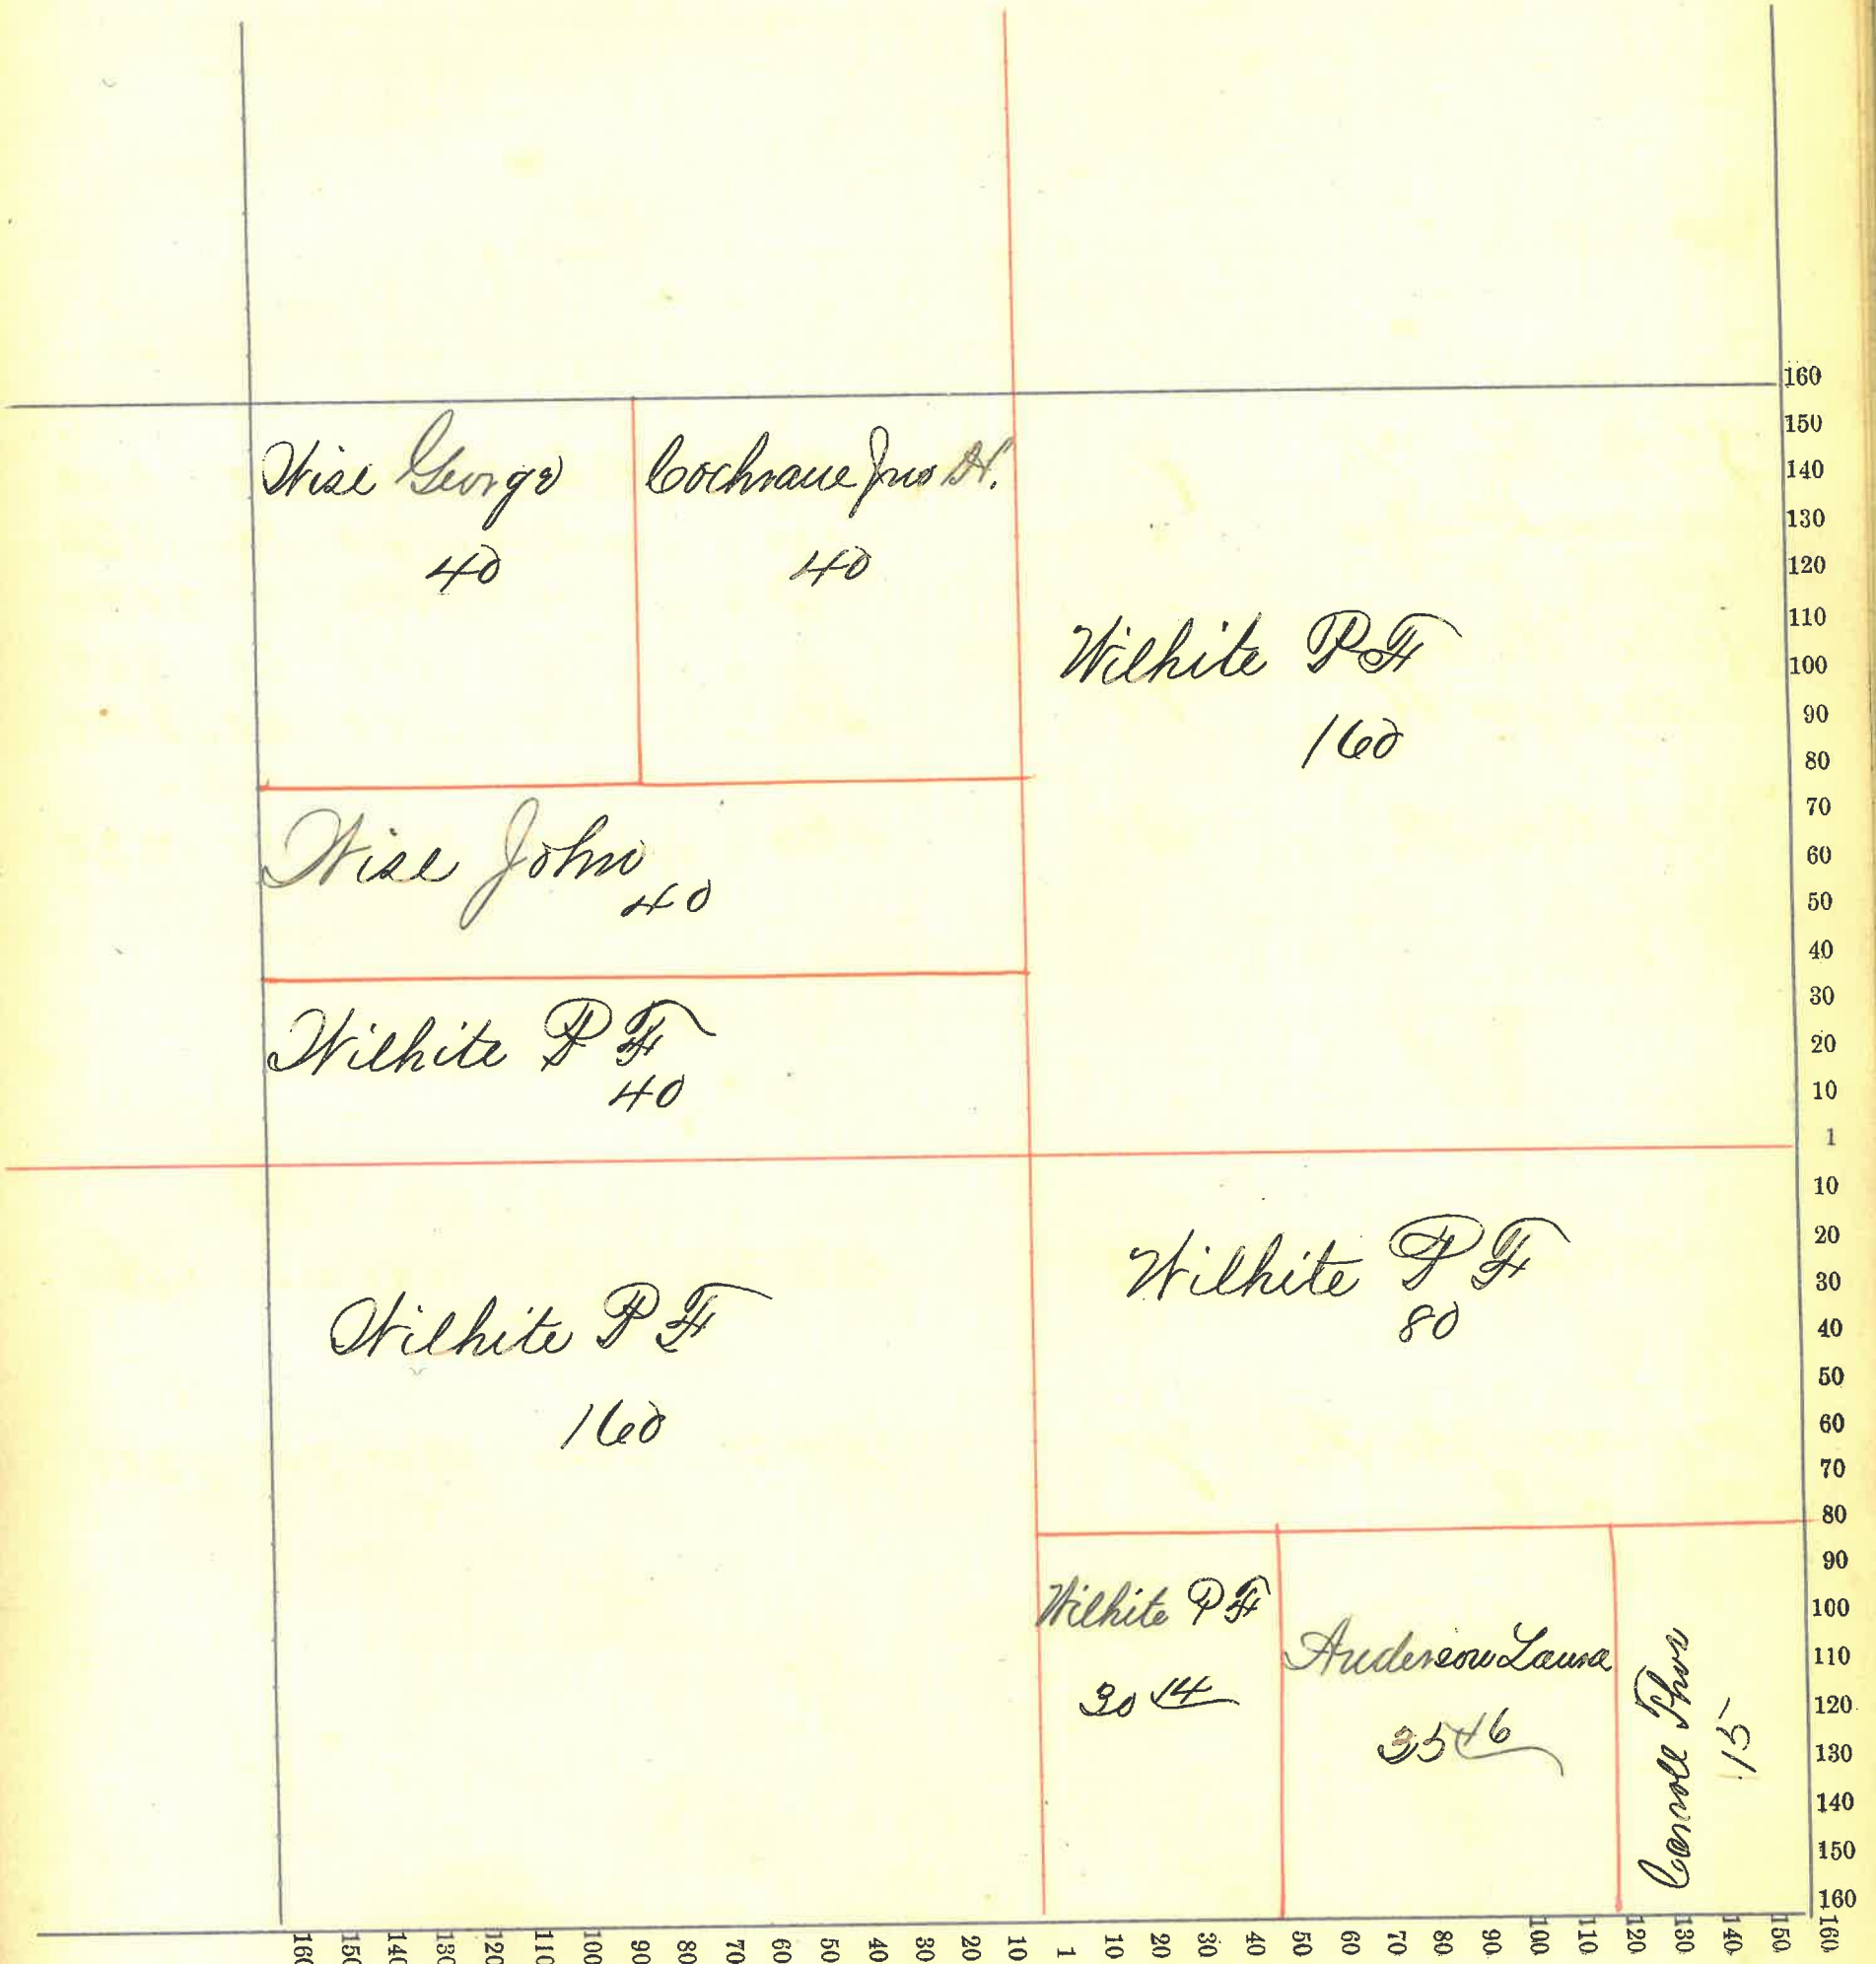 Wise George
40
Cochrane Jno H.
40
Wilhite P F
160
Wise John
40
Wilhite P F
40
Wilhite P F
160
Wilhite P F
80
Wilhite P F
30 14
Anderson Laura
35 46
Carroll Thos
15
160
150
140
130
120
110
100
90
80
70
60
50
40
30
20
10
1
10
20
30
40
50
60
70
80
90
100
110
120
130
140
150
160
160 150 140 130 120 110 100 90 80 70 60 50 40 30 20 10 1 10 20 30 40 50 60 70 80 90 100 110 120 130 140 150 160